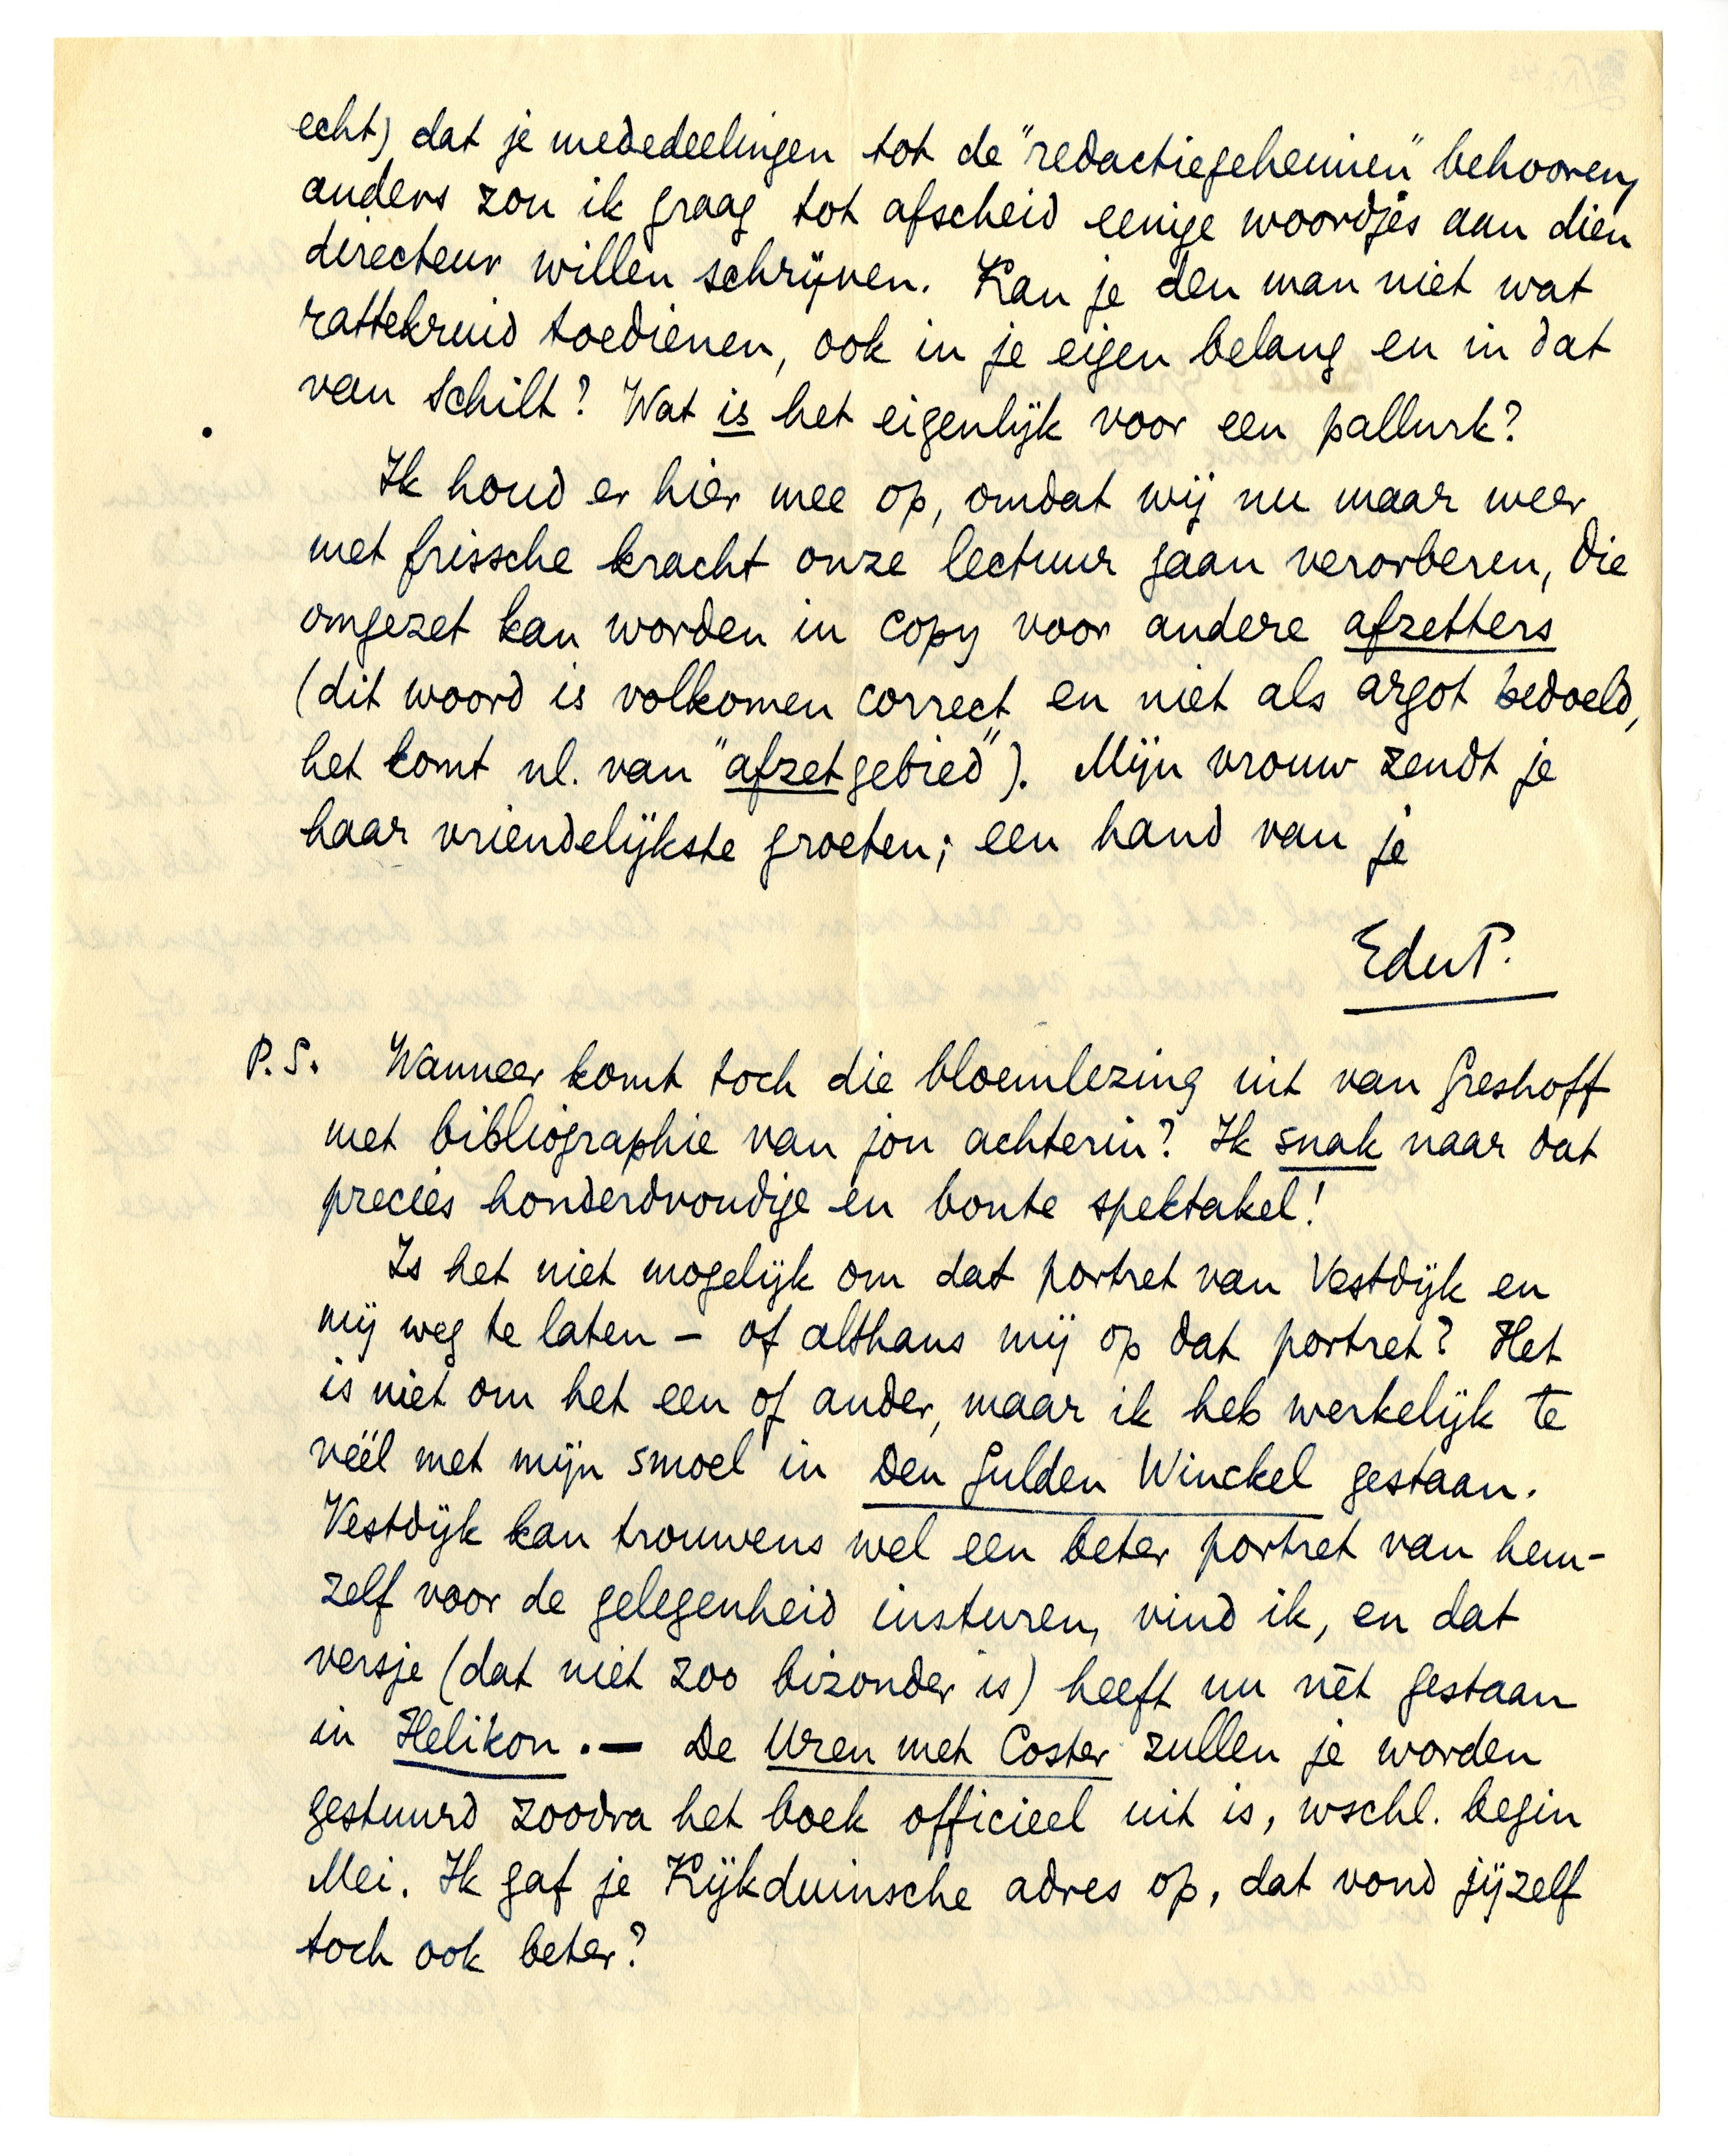 echt) dat je mededeelingen tot de "redactiegeheimen" behooren,
anders zou ik graag tot afscheid eenige woordjes aan dien
directeur willen schrijven. Kan je den man niet wat
rattekruid toedienen, ook in je eigen belang en in dat
van Schilt? Wat is het eigenlijk voor een pallurk?
Ik houd er hier mee op, omdat wij nu maar weer
met frissche kracht onze lectuur gaan verorberen, die
omgezet kan worden in copy voor andere afzetters
(dit woord is volkomen correct en niet als argot bedoeld,
het komt nl. van "afzetgebied"). Mijn vrouw zendt je
haar vriendelijkste groeten; een hand van je
EduP.
P.S. Wanneer komt toch die bloemlezing uit van Greshoff
met bibliographie van jou achterin? Ik snak naar dat
precies honderdvoudige en bonte spektakel!
Is het niet mogelijk om dat portret van Vestdijk en
mij weg te laten – of althans mij op dat portret? Het
is niet om het een of ander, maar ik heb werkelijk te
véél met mijn smoel in Den Gulden Winckel gestaan.
Vestdijk kan trouwens wel een beter portret van hem-
zelf voor de gelegenheid insturen, vind ik, en dat
versje (dat niet zoo bizonder is) heeft nu nèt gestaan
in Helikon. — De Uren met Coster zullen je worden
gestuurd zoodra het boek officieel uit is, wschl. begin
Mei. Ik gaf je Kijkduinsche adres op, dat vond jijzelf
toch ook beter?